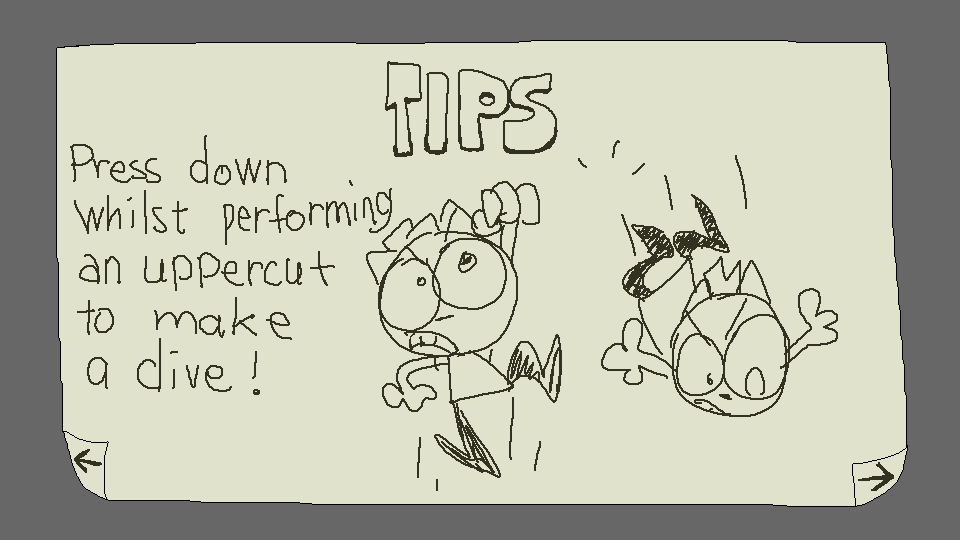 TIPS
Press down
whilst performing
an uppercut
to make
a dive!